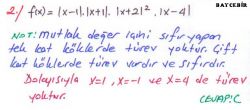 BAYCEBİR
2-) f(x) = |x-1|.|x+1|.|x+2|². |x-4|
NOT: mutlak değer içini sıfır yapan
tek kat köklerde türev yoktur. Çift
kat köklerde türev vardır ve sıfırdır.
Dolayısıyla x=1, x=-1 ve x=4 de türev
yoktur.
CEVAP: C